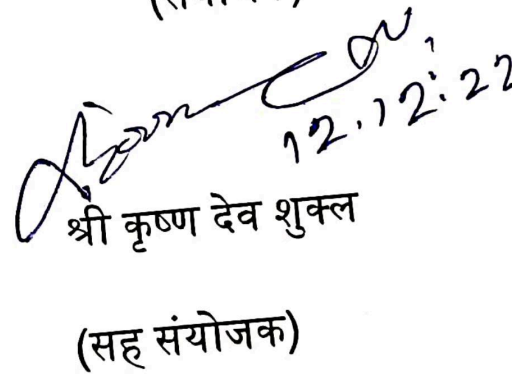 12.12.22
श्री कृष्ण देव शुक्ल
(सह संयोजक)